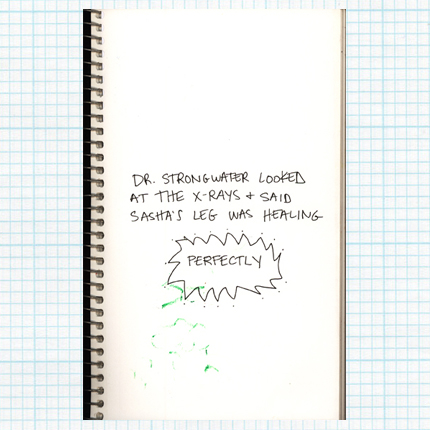 DR. STRONGWATER LOOKED
AT THE X-RAYS + SAID
SASHA'S LEG WAS HEALING
PERFECTLY